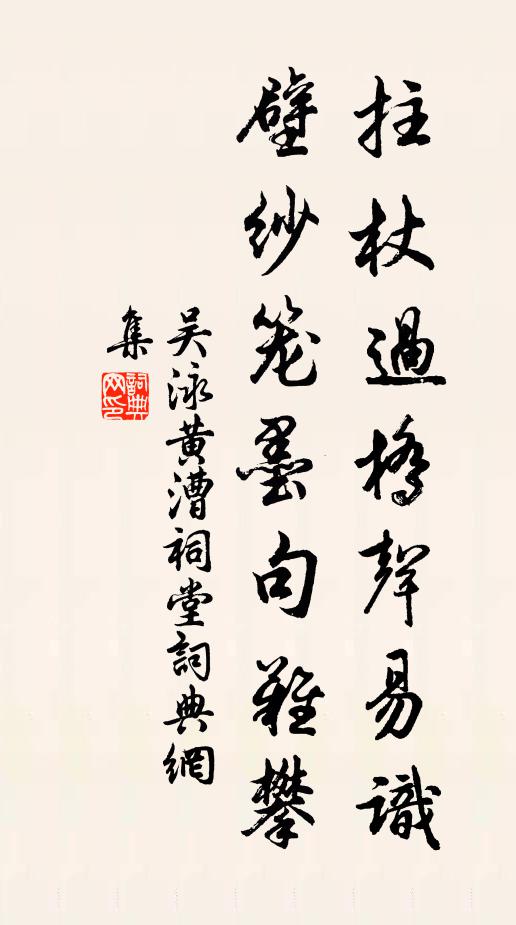 拄杖過橋聲易識
壁紗笼墨句難攀
吴泳黄漕祠堂詞典網
集
詞典网印